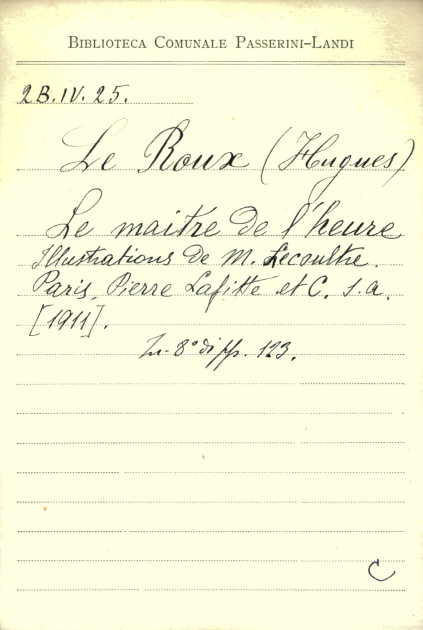 BIBLIOTECA COMUNALE PASSERINI-LANDI
2B.IV.25.
Le Roux (Hugues)
Le maitre de l'heure
Illustrations de M. Lecoultre.
Paris, Pierre Lafitte et C. s.a.
[1911].
In-8° di pp. 123.
C